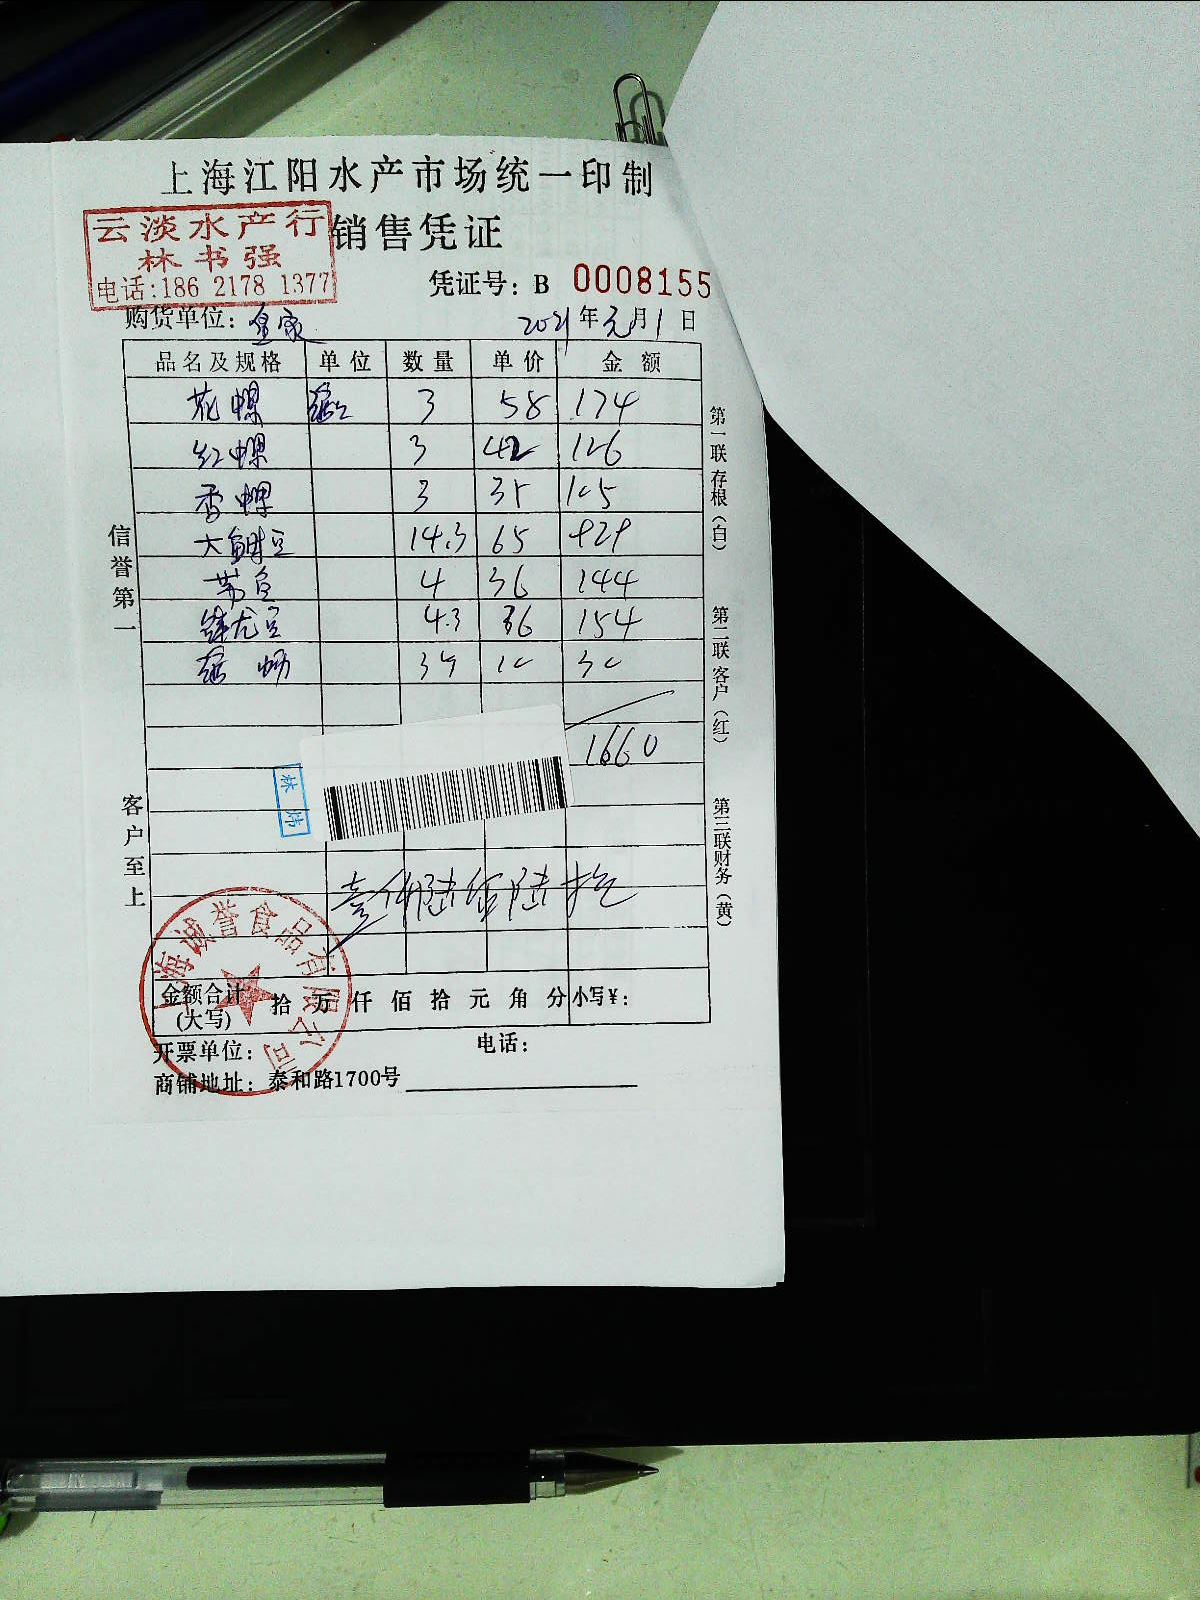 上海江阳水产市场统一印制
云淡水产行
林书强
电话:186 2178 1377
销售凭证
凭证号: B 0008155
购货单位: 皇家 2021年元月1日
品名及规格 单位 数量 单价 金额
花螺 3 58 174
红螺 3 42 126
香螺 3 35 105
大 14.3 65 929
带鱼 4 36 144
4.3 36 154
10 30
1660
林炜
壹仟陆佰陆拾
金额合计(大写) 拾 万 仟 佰 拾 元 角 分 小写¥:
开票单位: 电话:
商铺地址: 泰和路1700号
上海诚誉食品有限公司
信誉第一
客户至上
第一联存根(白)
第二联客户(红)
第三联财务(黄)